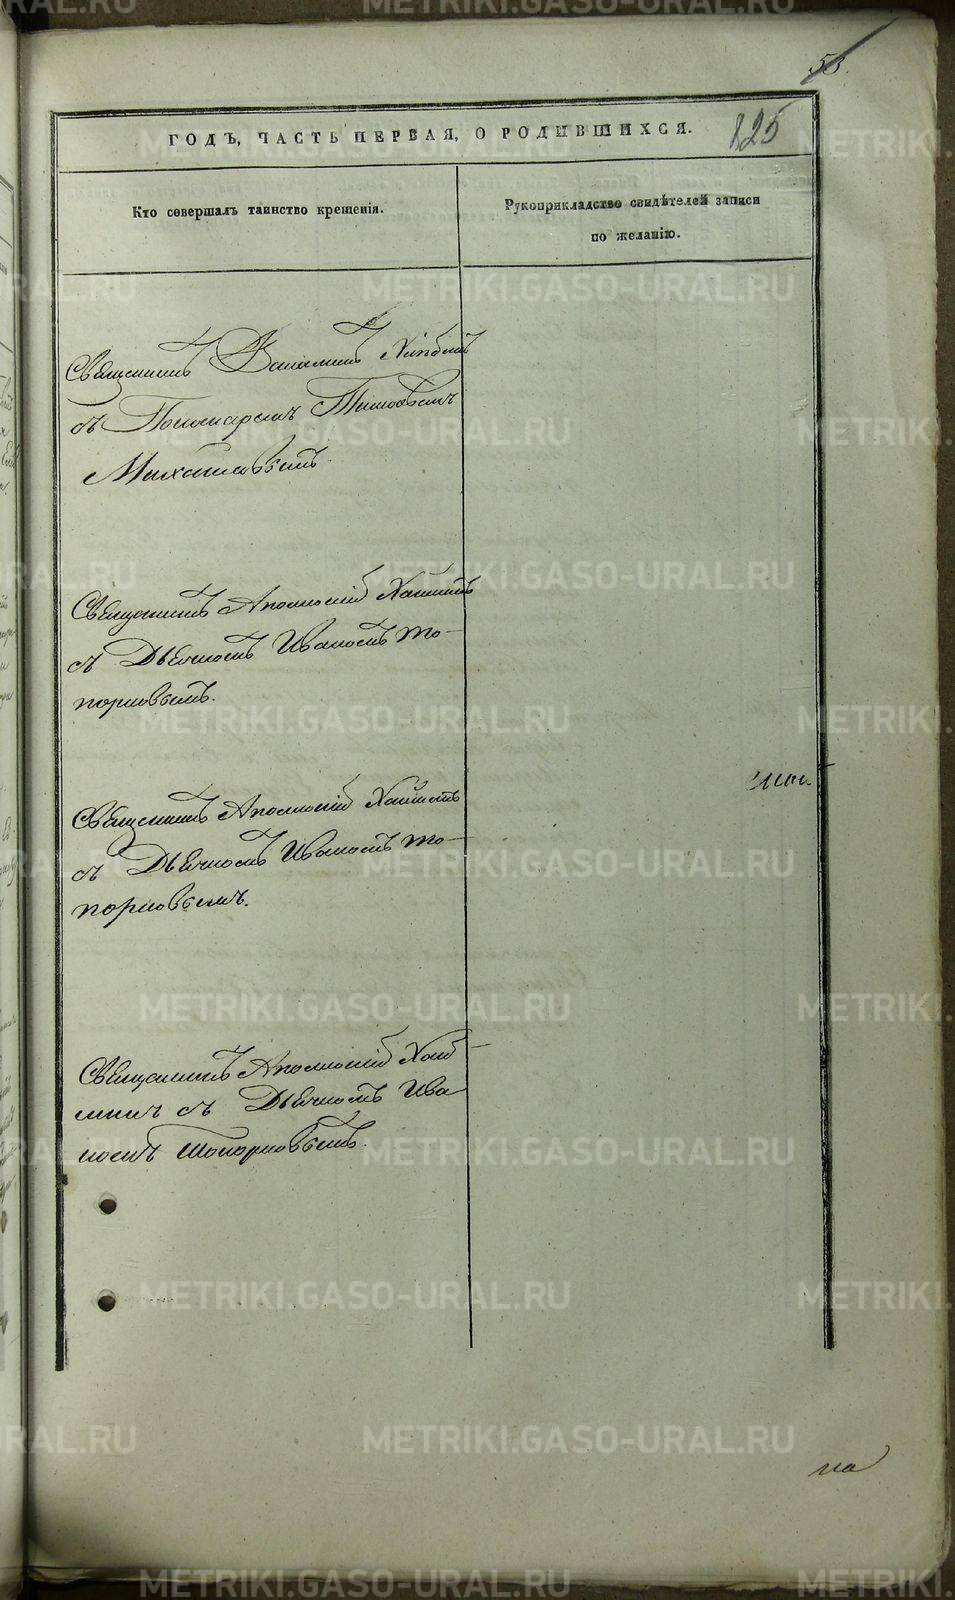 58.
ГОДЪ, ЧАСТЬ ПЕРВАЯ, О РОДИВШИХСЯ.
825
Кто совершалъ таинство крещенія.
Рукоприкладство свидѣтелей записи
по желанію.
Священникъ
съ Пономаремъ
Михайловымъ.
Священникъ Аполлоній
съ Дьячкомъ Иваномъ То-
порковымъ.
Священникъ Аполлоній
съ Дьячкомъ Иваномъ То-
порковымъ.
Священникъ Аполлоній
съ Дьячкомъ Ива
номъ Топорковымъ.
на
METRIKI.GASO-URAL.RU